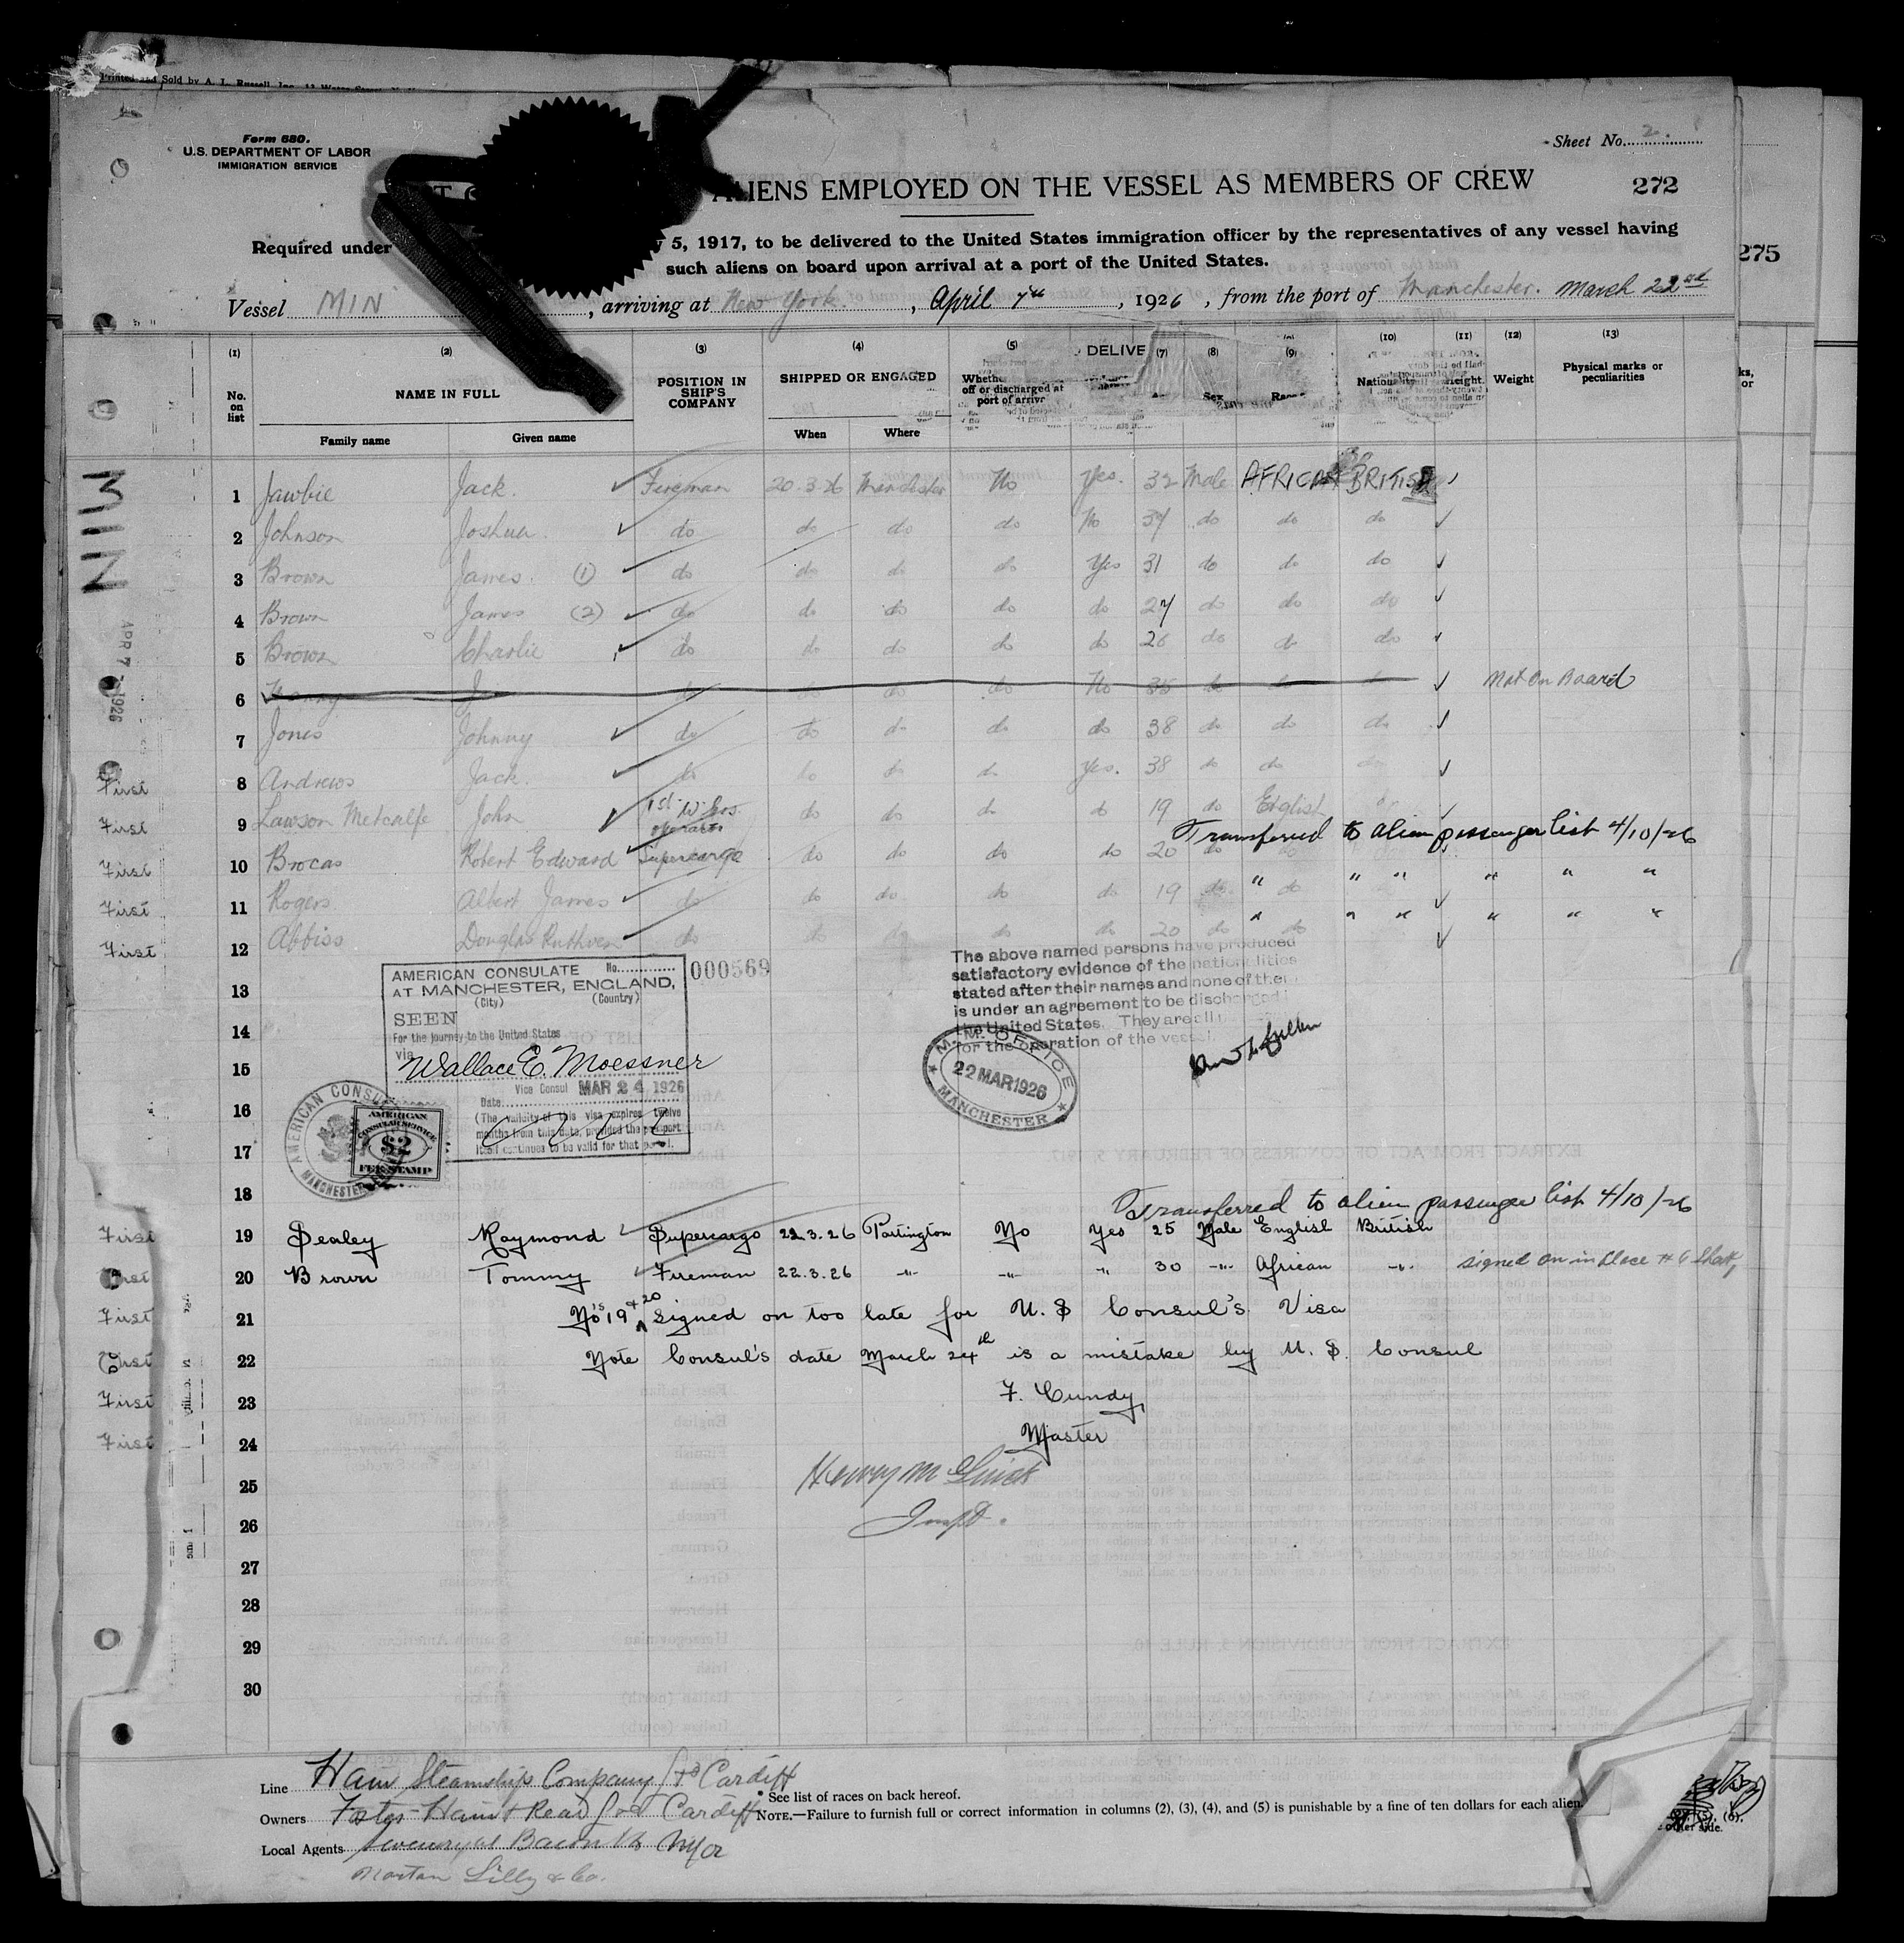 Printed and Sold by A. L. Russell, Inc.
Form 680.
U.S. DEPARTMENT OF LABOR
IMMIGRATION SERVICE
Sheet No. 2.
ALIENS EMPLOYED ON THE VESSEL AS MEMBERS OF CREW
272
Required under 5, 1917, to be delivered to the United States immigration officer by the representatives of any vessel having
275
such aliens on board upon arrival at a port of the United States.
Vessel MIN , arriving at New York. , April 7th , 1926 , from the port of Manchester. March 22nd
(1) (2) (3) (4) (5) DELIVE (7) (8) (9) (10) (11) (12) (13)
No. on list
NAME IN FULL
POSITION IN SHIP'S COMPANY
SHIPPED OR ENGAGED
off or discharged at port of
Sex
Weight
Physical marks or peculiarities
Family name Given name When Where
MIN
APR 7 1926
1 Jawbie Jack. Fireman 20.3.26 Manchester No Yes. 32 Male AFRICAN BRITISH
2 Johnson Joshua. do do do do No 37 do do do
3 Brown James (1) do do do do Yes 31 do do do
4 Brown James (2) do do do do do 27 do do do
5 Brown Charlie do do do do do 26 do do do
6 do do do do No 35 do Not On Board
7 Jones Johnny do do do do do 38 do do do
First 8 Andrews Jack. do do do do Yes. 38 do do do
First 9 Lawson Metcalfe John 1st W'less operator do do do do 19 do English
Transferred to alien passenger list 4/10/26
First 10 Brocas Robert Edward Supercargo do do do do 20 do
First 11 Rogers Albert James do do do do do 19 do do " " " " " "
First 12 Abbiss Douglas Ruthven do do do do do 20 do do " " " " " "
13
14
15
16
17
18
AMERICAN CONSULATE No. 000569
AT MANCHESTER, ENGLAND,
(City) (Country)
SEEN
For the journey to the United States
via
Wallace E. Moessner
Vice Consul
Date MAR 24 1926
(The validity of this visa expires twelve
months from this date, provided the passport
itself continues to be valid for that period.
AMERICAN CONSUL
MANCHESTER
AMERICAN
CONSULAR SERVICE
$2
FEE STAMP
The above named persons have produced
satisfactory evidence of the nationalities
stated after their names and none of them
is under an agreement to be discharged
the United States. They are all
for the operation of the vessel.
M.M. OFFICE
22 MAR 1926
MANCHESTER
Transferred to alien passenger list 4/10/26
First 19 Sealey Raymond Supercargo 22.3.26 Partington No Yes 25 Male English British
First 20 Brown Tommy Fireman 22.3.26 -"- -"- " 30 -"- African -"- signed on in place #6
First 21 No's 19 & 20 signed on too late for U.S Consul's Visa
First 22 Note Consul's date March 24th is a mistake by U.S. Consul
First 23 F. Cundy,
First 24 Master
25
26
27
28
29
30
Line Hain Steamship Company Ltd Cardiff
* See list of races on back hereof.
Owners Foster Hain & Read Ltd Cardiff
NOTE.—Failure to furnish full or correct information in columns (2), (3), (4), and (5) is punishable by a fine of ten dollars for each alien.
Local Agents